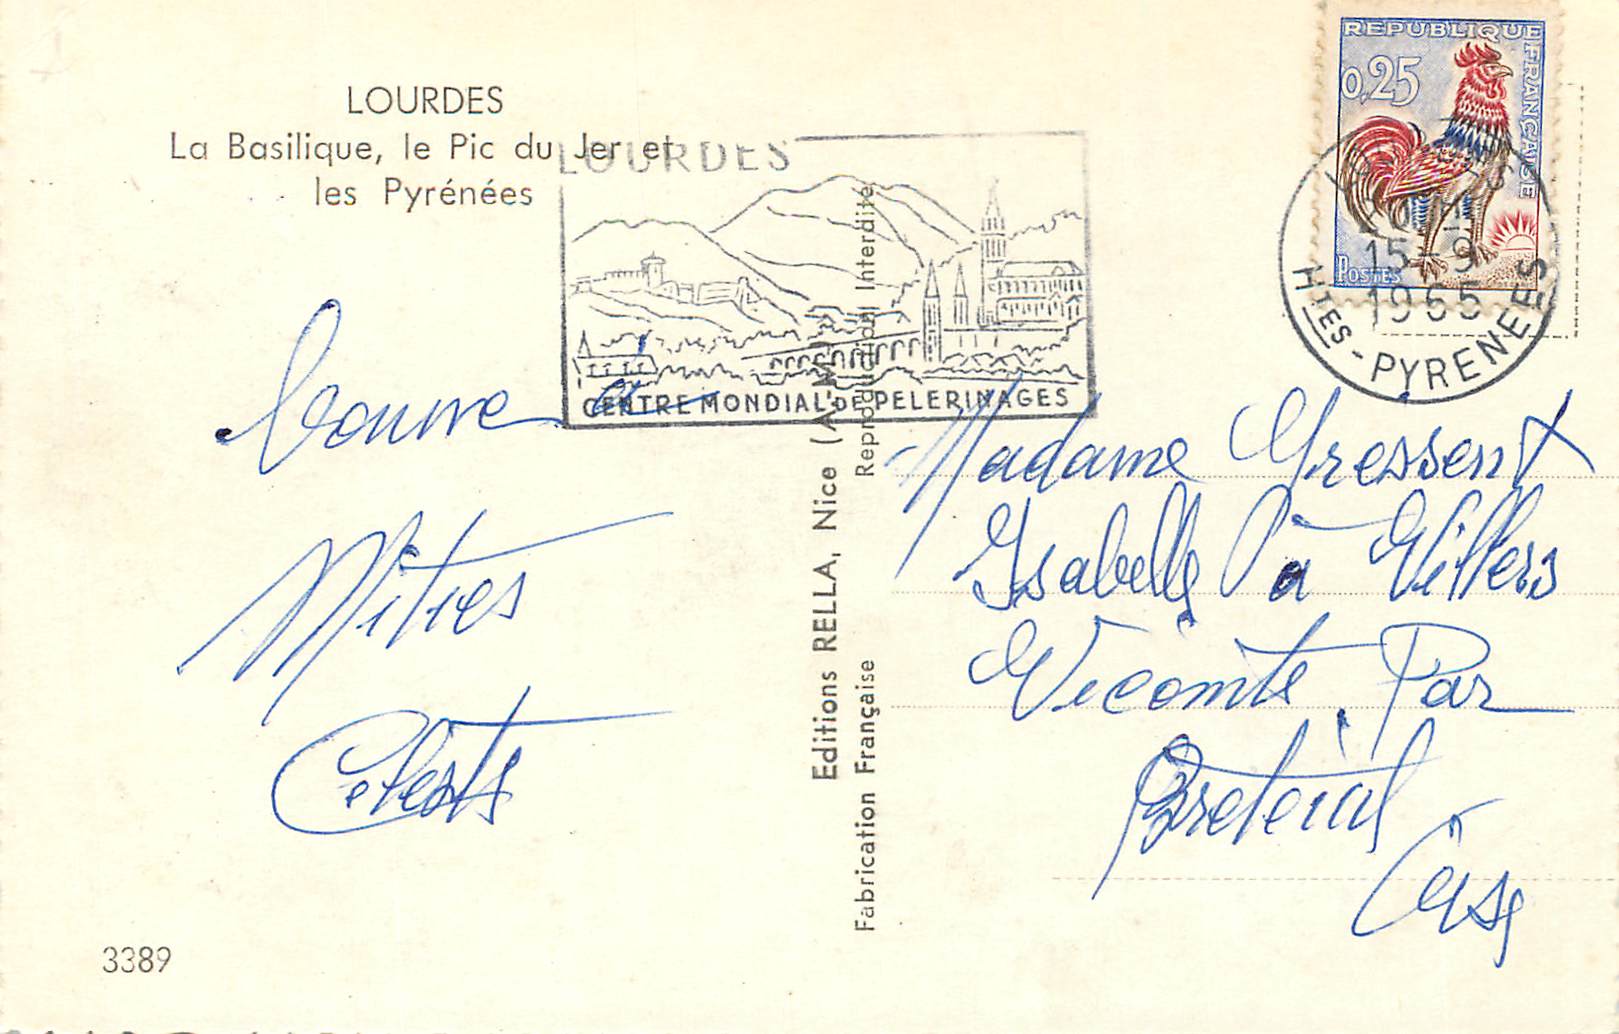 LOURDES
La Basilique, le Pic du Jer et
les Pyrénées
LOURDES
CENTRE MONDIAL DE PELERINAGES
REPUBLIQUE FRANÇAISE
0,25
POSTES
15-9
1965
HTES-PYRENEES
Madame Gressent
Isabelle à Villers
Vicomte Par
Breteuil
Célests
Editions RELLA, Nice (A.-M.)
Reproduction Interdite
Fabrication Française
3389